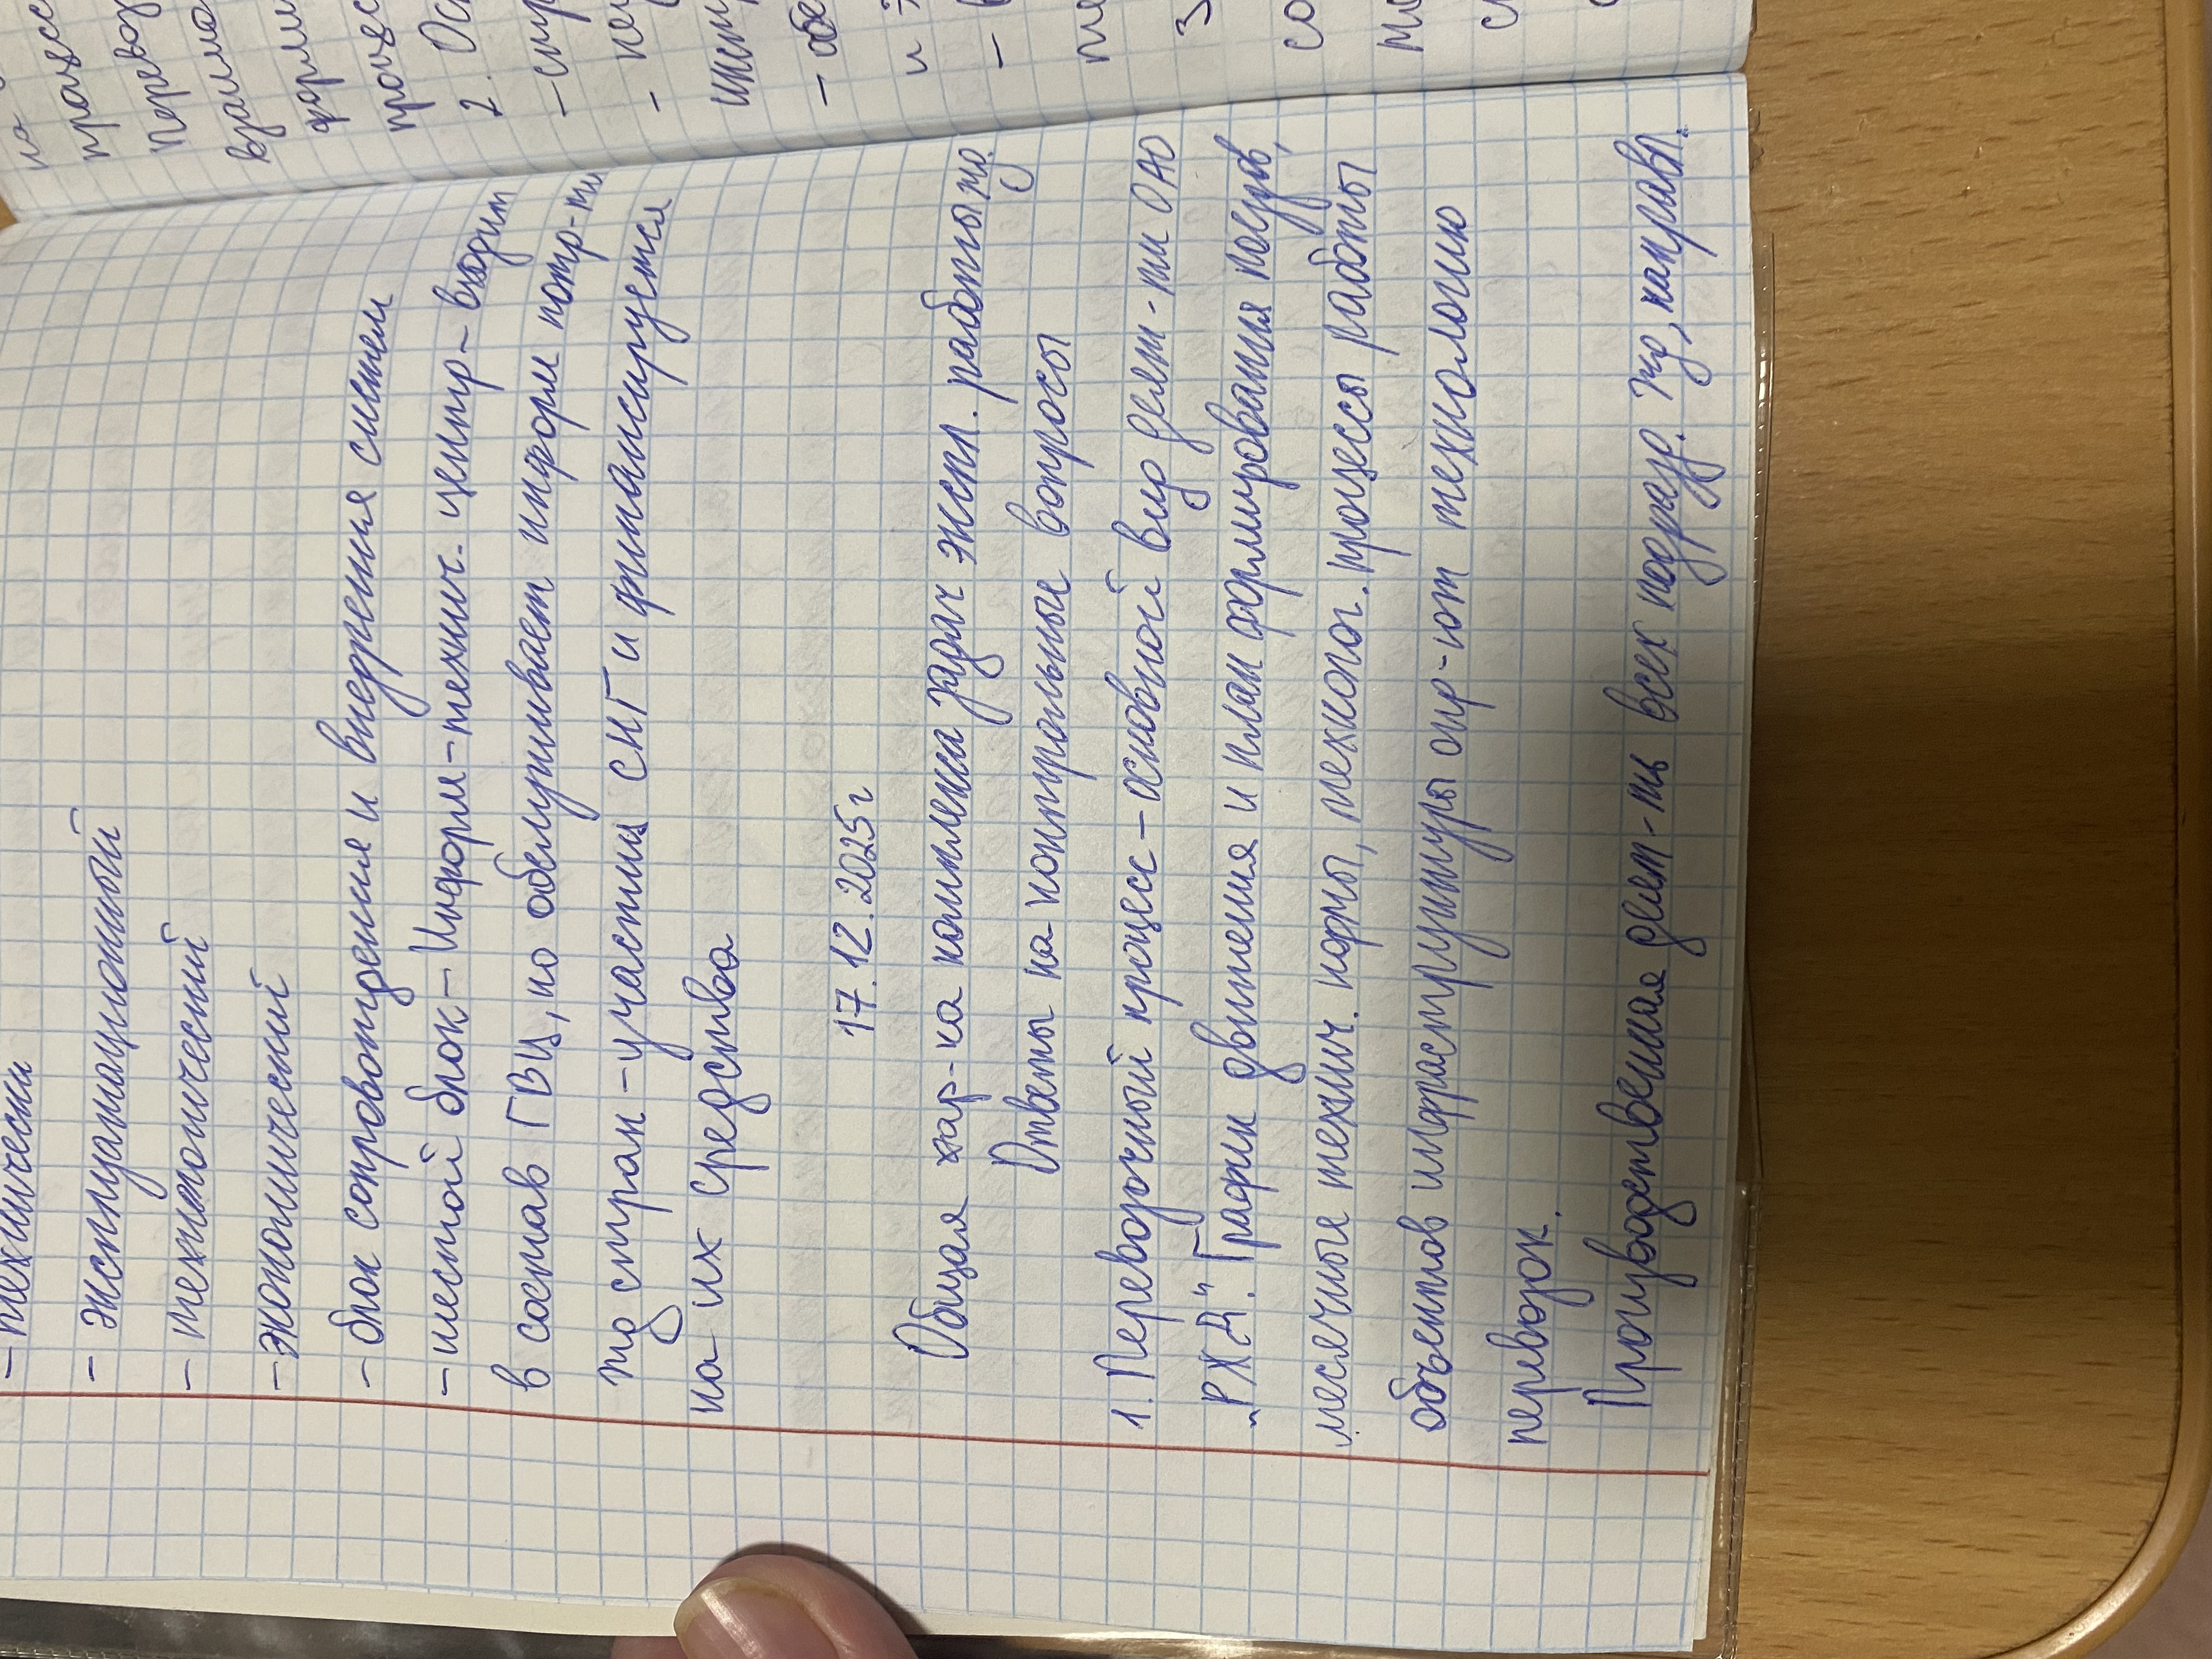 - технически
- эксплуатационный
- технологический
- экономический
- блок сопровождения и внедрения систем
- местной блок - Информ-технич. центр - входит
в состав ГВЦ, но обслуживает информ потр-ти
жд стран-участниц СНГ и финансируется
на их средства
17.12.2025г
Общая хар-ка комплекса задач экспл. работы жд.
Ответы на контрольные вопросы
1. Перевозочный процесс - основной вид деят-ти ОАО
"РЖД". График движения и план формирования поездов,
месячные технич. нормы, технолог. процессы работы
объектов инфраструктуры опр-ют технологию
перевозок.
Производственная деят-ть всех подразд. жд, направл.
на
процесс
перевоз
взаимо
форми
процес
2. Осн